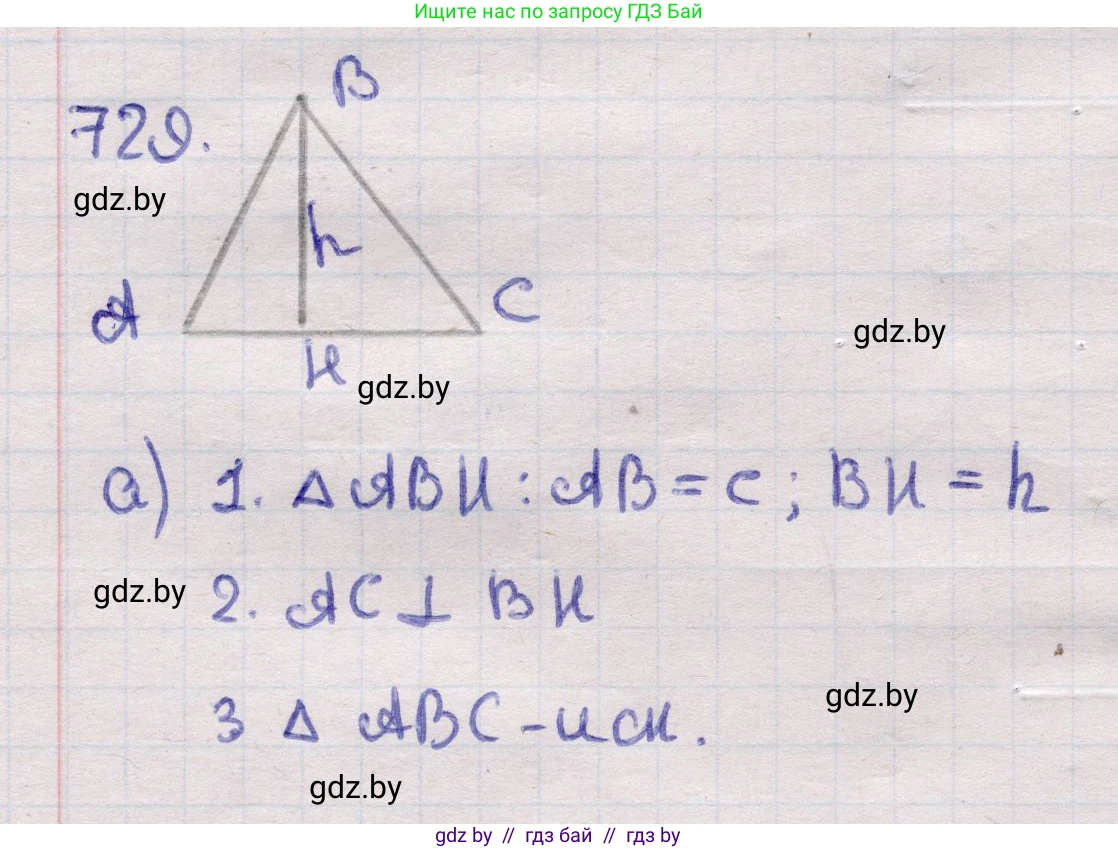 Ищите нас по запросу ГДЗ Бай
B
729.
gdz.by
h
A
C
gdz.by
H
gdz.by
а) 1. △ ABH : AB = c ; BH = h
gdz.by
2. AC ⊥ BH
gdz.by
3 △ ABC - иск.
gdz.by
gdz by // гдз бай // гдз by